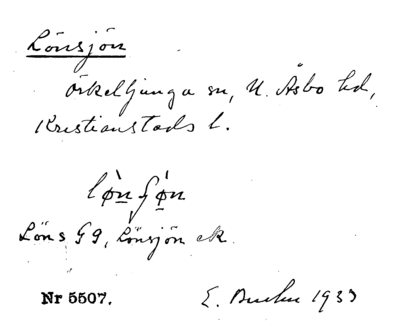 Lönsjön
Örkelljunga sn, N. Åsbo hd,
Kristianstads l.
Löns G9, Lönsjön ek.
Nr 5507.
E. 1933